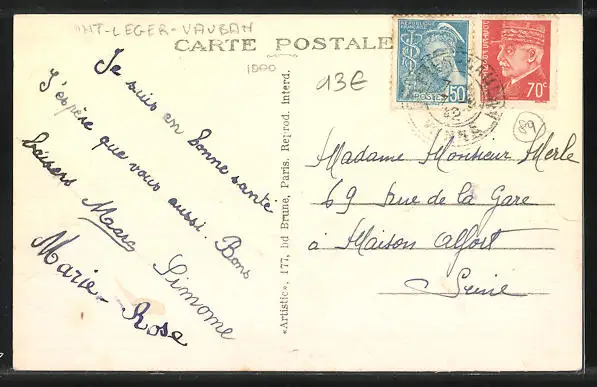 NT-LEGER-VAUBAN
CARTE POSTALE
1000
13€
Je suis en bonne santé
J'espère que vous aussi. Bons
baisers Simone
Marie-Rose
«Artistic», 177, bd Brune, Paris. Reprod. Interd.
POSTES 50
70c
Madame Monsieur Merle
69 rue de la Gare
à Maison Alfort
Seine